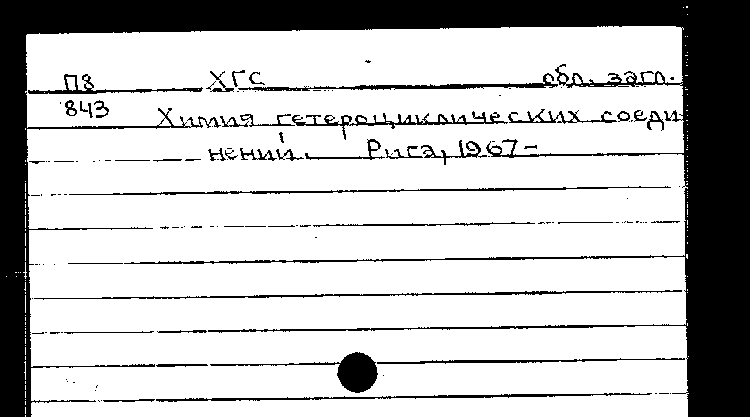 П8 ХГС обл. загл.
843 Химия гетероциклических соеди
нений. Рига, 1967-